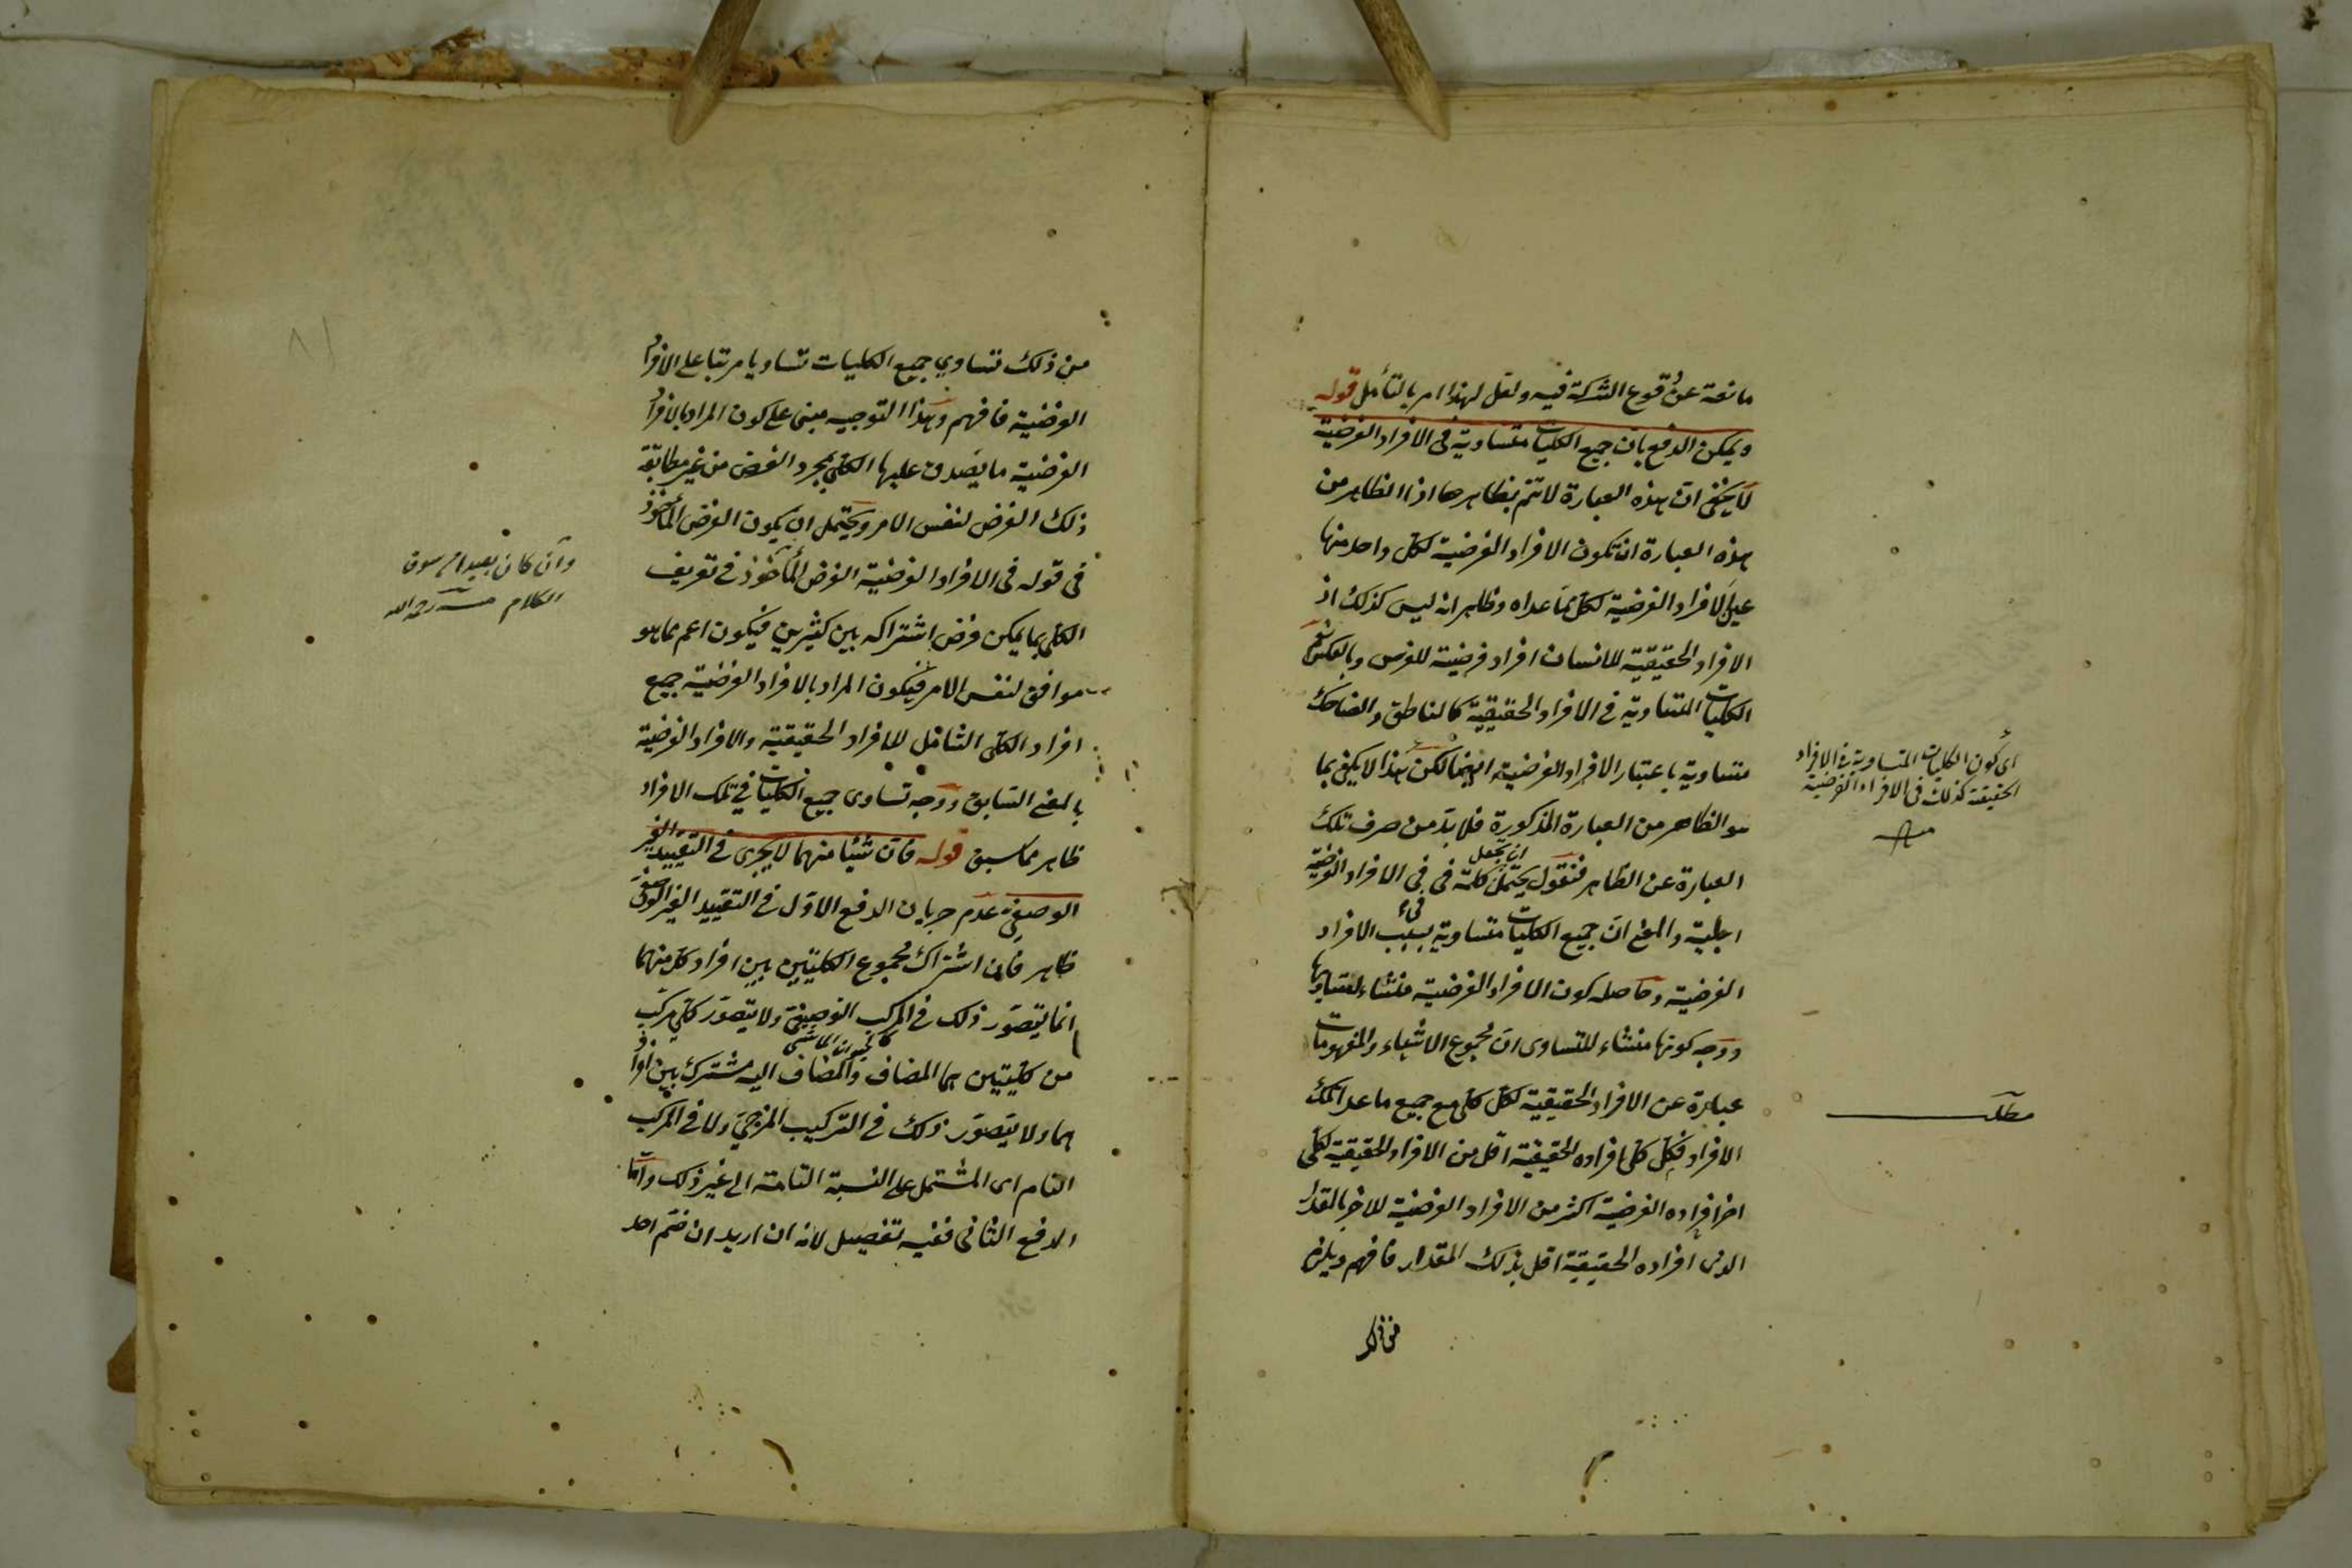 مانعة عن وقوع الشركة فيه ولعل لهذا امر بالتأمل قوله
ويمكن الدفع بان جميع الكليات متساوية فى الافراد الفرضية
لا يخفى ان هذه العبارة لا تتم بظاهرها اذ الظاهر من
هذه العبارة ان تكون الافراد الفرضية لكل واحد منها
عين الافراد الفرضية لكل ما عداه وظاهر انه ليس كذلك اذ
الافراد الحقيقية للانسان افراد فرضية للفرس وبالعكس نعم
الكليات المتساوية فى الافراد الحقيقية كالناطق والضاحك
متساوية باعتبار الافراد الفرضية ايضا لكن هذا لا يكفى بما
هو الظاهر من العبارة المذكورة فلا بد من صرف تلك
العبارة عن الظاهر فنقول يحتمل ان تجعل كلمة فى فى الافراد الفرضية
اجلية والمعنى ان جميع الكليات متساوية بسبب الافراد
الفرضية وحاصله كون الافراد الفرضية منشاء لتساويها
ووجه كونها منشاء للتساوى ان مجموع الاشياء والمفهومات
عبارة عن الافراد الحقيقية لكل كلى مع جميع ما عدا تلك
الافراد فكل كلى افراده الحقيقية اقل من الافراد الحقيقية لكلى
اخر افراده الفرضية اكثر من الافراد الفرضية للاخر بالمقدار
الذى افراده الحقيقية اقل بذلك المقدار فافهم ويلزم
من ذلك
اى كون الكليات المتساوية فى الافراد
الحقيقة كذلك فى الافراد الفرضية
منه
مطلب
من ذلك تساوي جميع الكليات تساويا مرتبا على الافراد
الفرضية فافهم وهذا التوجيه مبنى على كون المراد بالافراد
الفرضية ما يصدق عليها الكلى بمجرد الفرض من غير مطابقة
ذلك الفرض لنفس الامر ويحتمل ان يكون الفرض المأخوذ
فى قوله فى الافراد الفرضية الفرض المأخوذ فى تعريف
الكلى بما يمكن فرض اشتراكه بين كثيرين فيكون اعم مما هو
موافق لنفس الامر فيكون المراد بالافراد الفرضية جميع
افراد الكلى الشامل للافراد الحقيقية والافراد الفرضية
بالمعنى السابق ووجه تساوى جميع الكليات فى تلك الافراد
ظاهر مما سبق قوله فان شيئا منهما لا يجرى فى التقييد الغير
الوصفى عدم جريان الدفع الاول فى التقييد الغير الوصفى
ظاهر فان اشتراك مجموع الكليتين بين افراد كل منهما
انما يتصور ذلك فى المركب التوصيفى ولا يتصور كلى مركب
كالحيوان الماشى
من كليتين هما المضاف والمضاف اليه مشترك بين افراد
هما ولا يتصور ذلك فى التركيب المزجى ولا فى المركب
التام اى المشتمل على النسبة التامة الى غير ذلك واما
الدفع الثانى ففيه تفصيل لانه ان اريد ان ضم احد
وان كان بعيدا عن سوق
الكلام منه رحمه الله